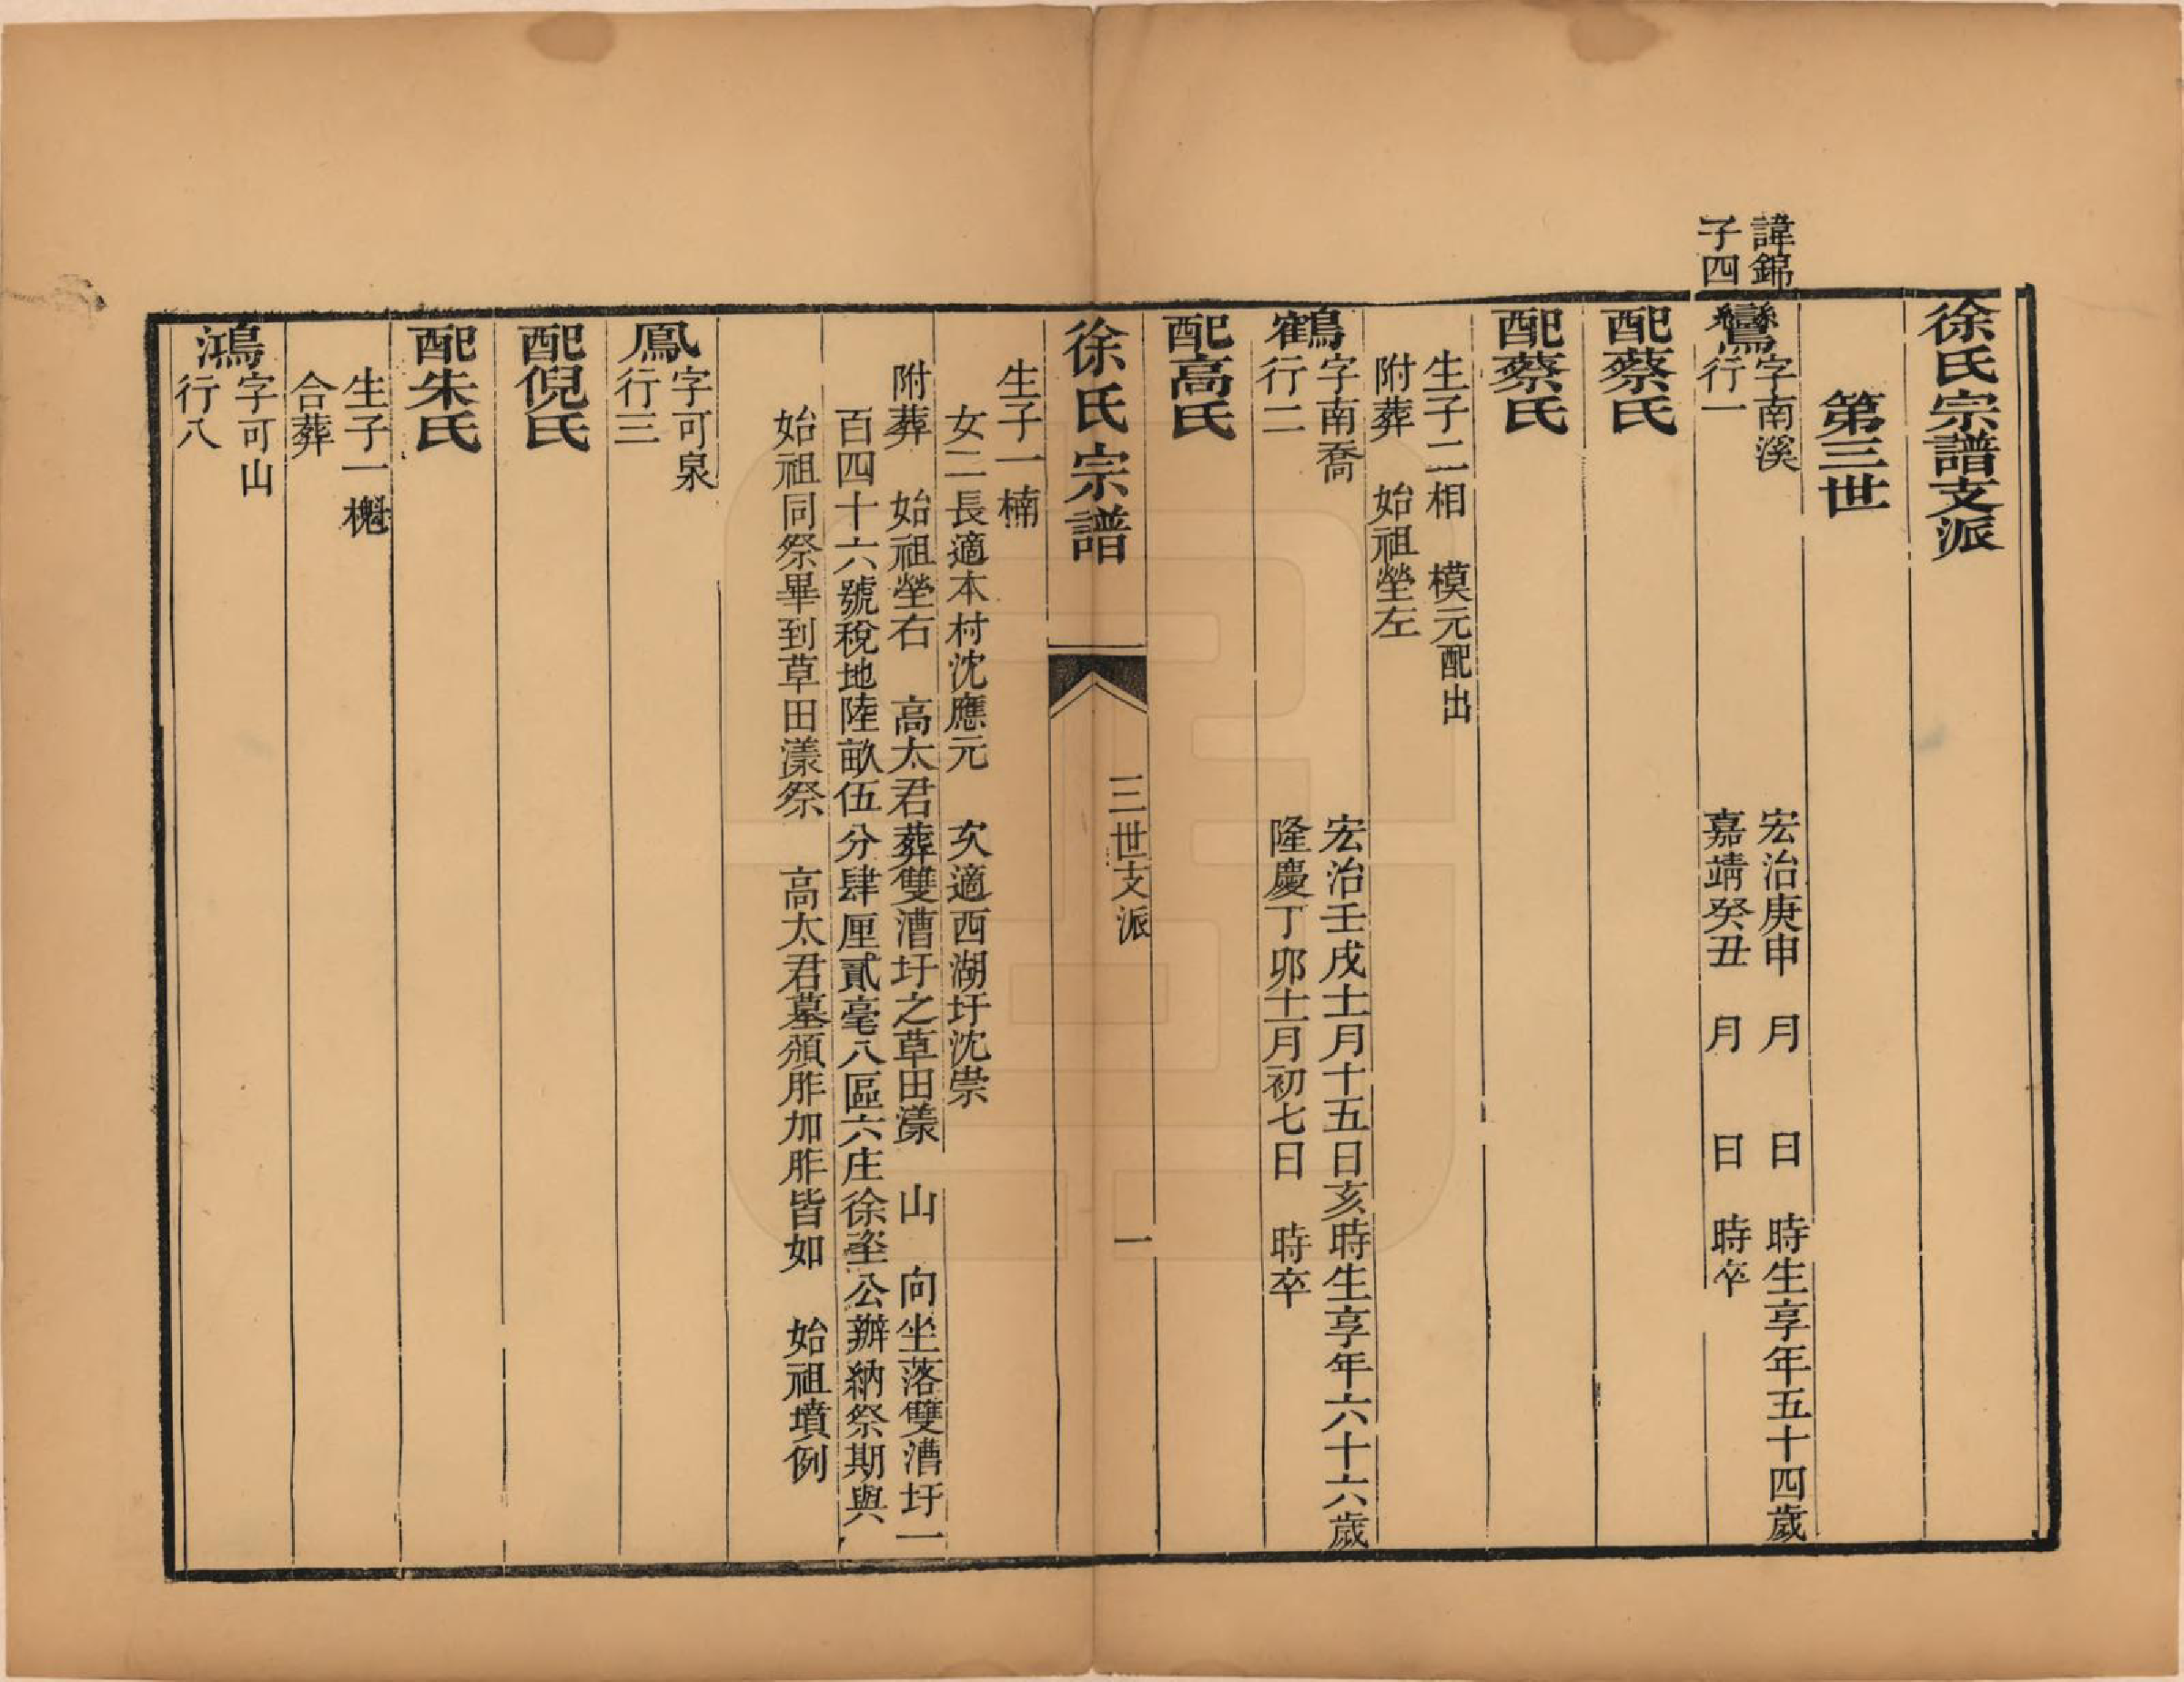 徐氏宗譜支派
第三世
諱錦
子四
鸞
字南溪
行一
宏治庚申　月　日　時生享年五十四歲
嘉靖癸丑　月　日　時卒
配蔡氏
配蔡氏
生子二相　模元配出
附葬　始祖塋左
鶴
字南喬
行二
宏治壬戌十一月十五日亥時生享年六十六歲
隆慶丁卯十一月初七日　時卒
配高氏
徐氏宗譜
三世支派
一
生子一楠
女二長適本村沈應元　次適西湖圩沈崇
附葬　始祖塋右　高太君葬雙漕圩之草田漾　山　向坐落雙漕圩一
百四十六號稅地陸畝伍分肆厘貳毫八區六庄徐垄公辦納祭期與
始祖同祭畢到草田漾祭　高太君墓頒胙加胙皆如　始祖墳例
鳳
字可泉
行三
配倪氏
配朱氏
生子一櫆
合葬
鴻
字可山
行八